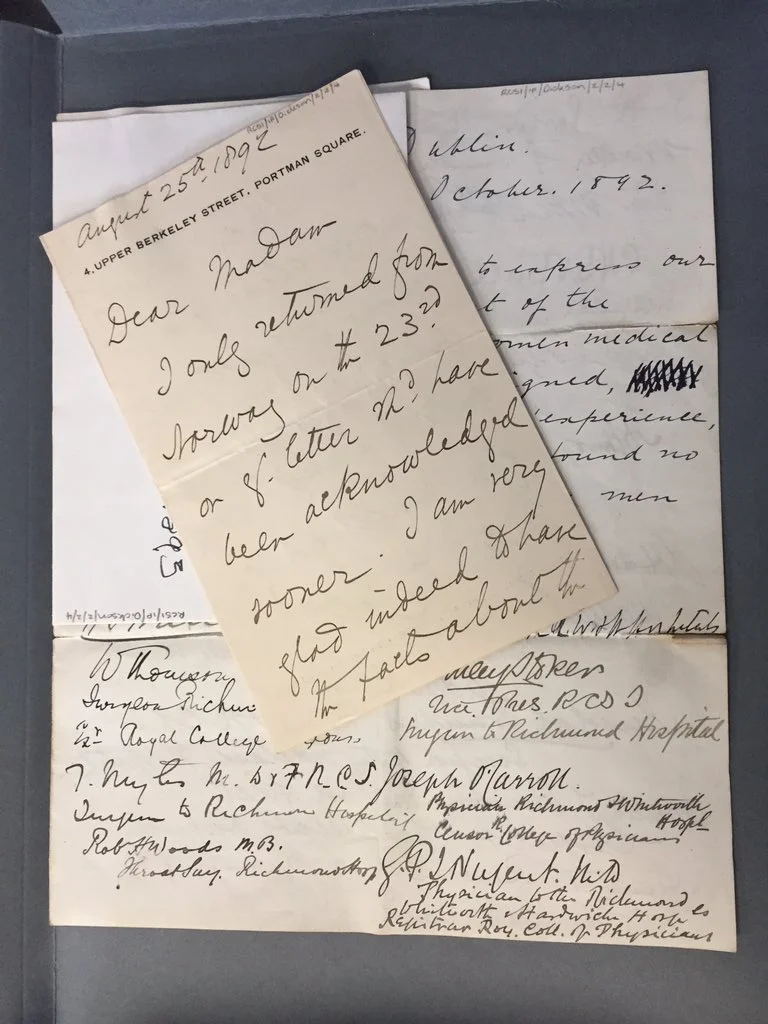 RCSI/IP/Dickson/2/2/4
August 25th. 1892
4, UPPER BERKELEY STREET, PORTMAN SQUARE.
Dear Madam
I only returned from
Norway on the 23rd.
or yr. letter shd. have
been acknowledged
sooner. I am very
glad indeed to have
the facts about the
RCSI/IP/Dickson/2/2/4
ublin.
October. 1892.
to express our
t of the
omen medical
igned,
experience,
ound no
men
1893
RCSI/IP/Dickson/2/2/4
W Thomson
Surgeon Richm
Royal College
T. Myles M.D & F.R.C.S.
Surgeon to Richmond Hospital
Robt H Woods M.B.
Throat Surg. Richmond Hosp
Hospitals
nley Stoker
Vice Pres. RCSI
Surgeon to Richmond Hospital
Joseph O'Carroll.
Physician Richmond & Whitworth
Hospl
Censor R. College of Physicians
G. P. L Nugent. MD
Physician to the Richmond
Whitworth & Hardwicke Hosp ls
Registrar Roy. Coll. of Physicians